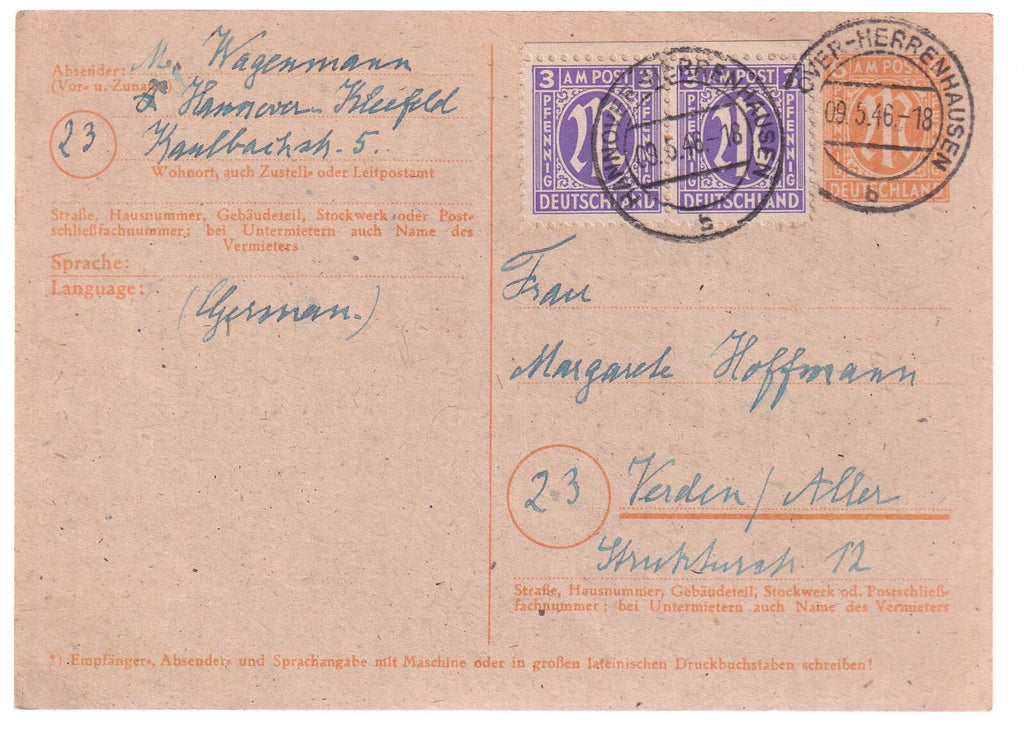 Absender: M. Wagenmann
(Vor- u. Zuname)
Hannover-Kleefeld
23
Kaulbachstr. 5.
Wohnort, auch Zustell- oder Leitpostamt
Straße, Hausnummer, Gebäudeteil, Stockwerk oder Post-
schließfachnummer; bei Untermietern auch Name des
Vermieters
Sprache:
Language:
(German.)
3 AM POST 3
PFENNIG
PFENNIG
DEUTSCHLAND
3 AM POST
PFENNIG
PFENNIG
DEUTSCHLAND
HANNOVER-HERRENHAUSEN
09.5.46.-18
6 AM POST
DEUTSCHLAND
OVER-HERRENHAUSEN
09.5.46.-18
b
Frau
Margarete Hoffmann
23
Verden/Aller
12
Straße, Hausnummer, Gebäudeteil, Stockwerk od. Postschließ-
fachnummer; bei Untermietern auch Name des Vermieters
*) Empfänger-, Absender- und Sprachangabe mit Maschine oder in großen lateinischen Druckbuchstaben schreiben!